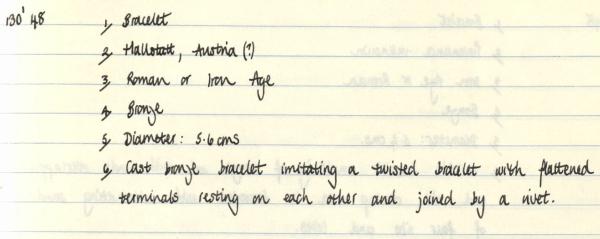 130'48 1, Bracelet
2, Hallstatt, Austria (?)
3, Roman or Iron Age
4, Bronze
5, Diameter: 5.6 cms
6, Cast bronze bracelet imitating a twisted bracelet with flattened
terminals resting on each other and joined by a rivet.